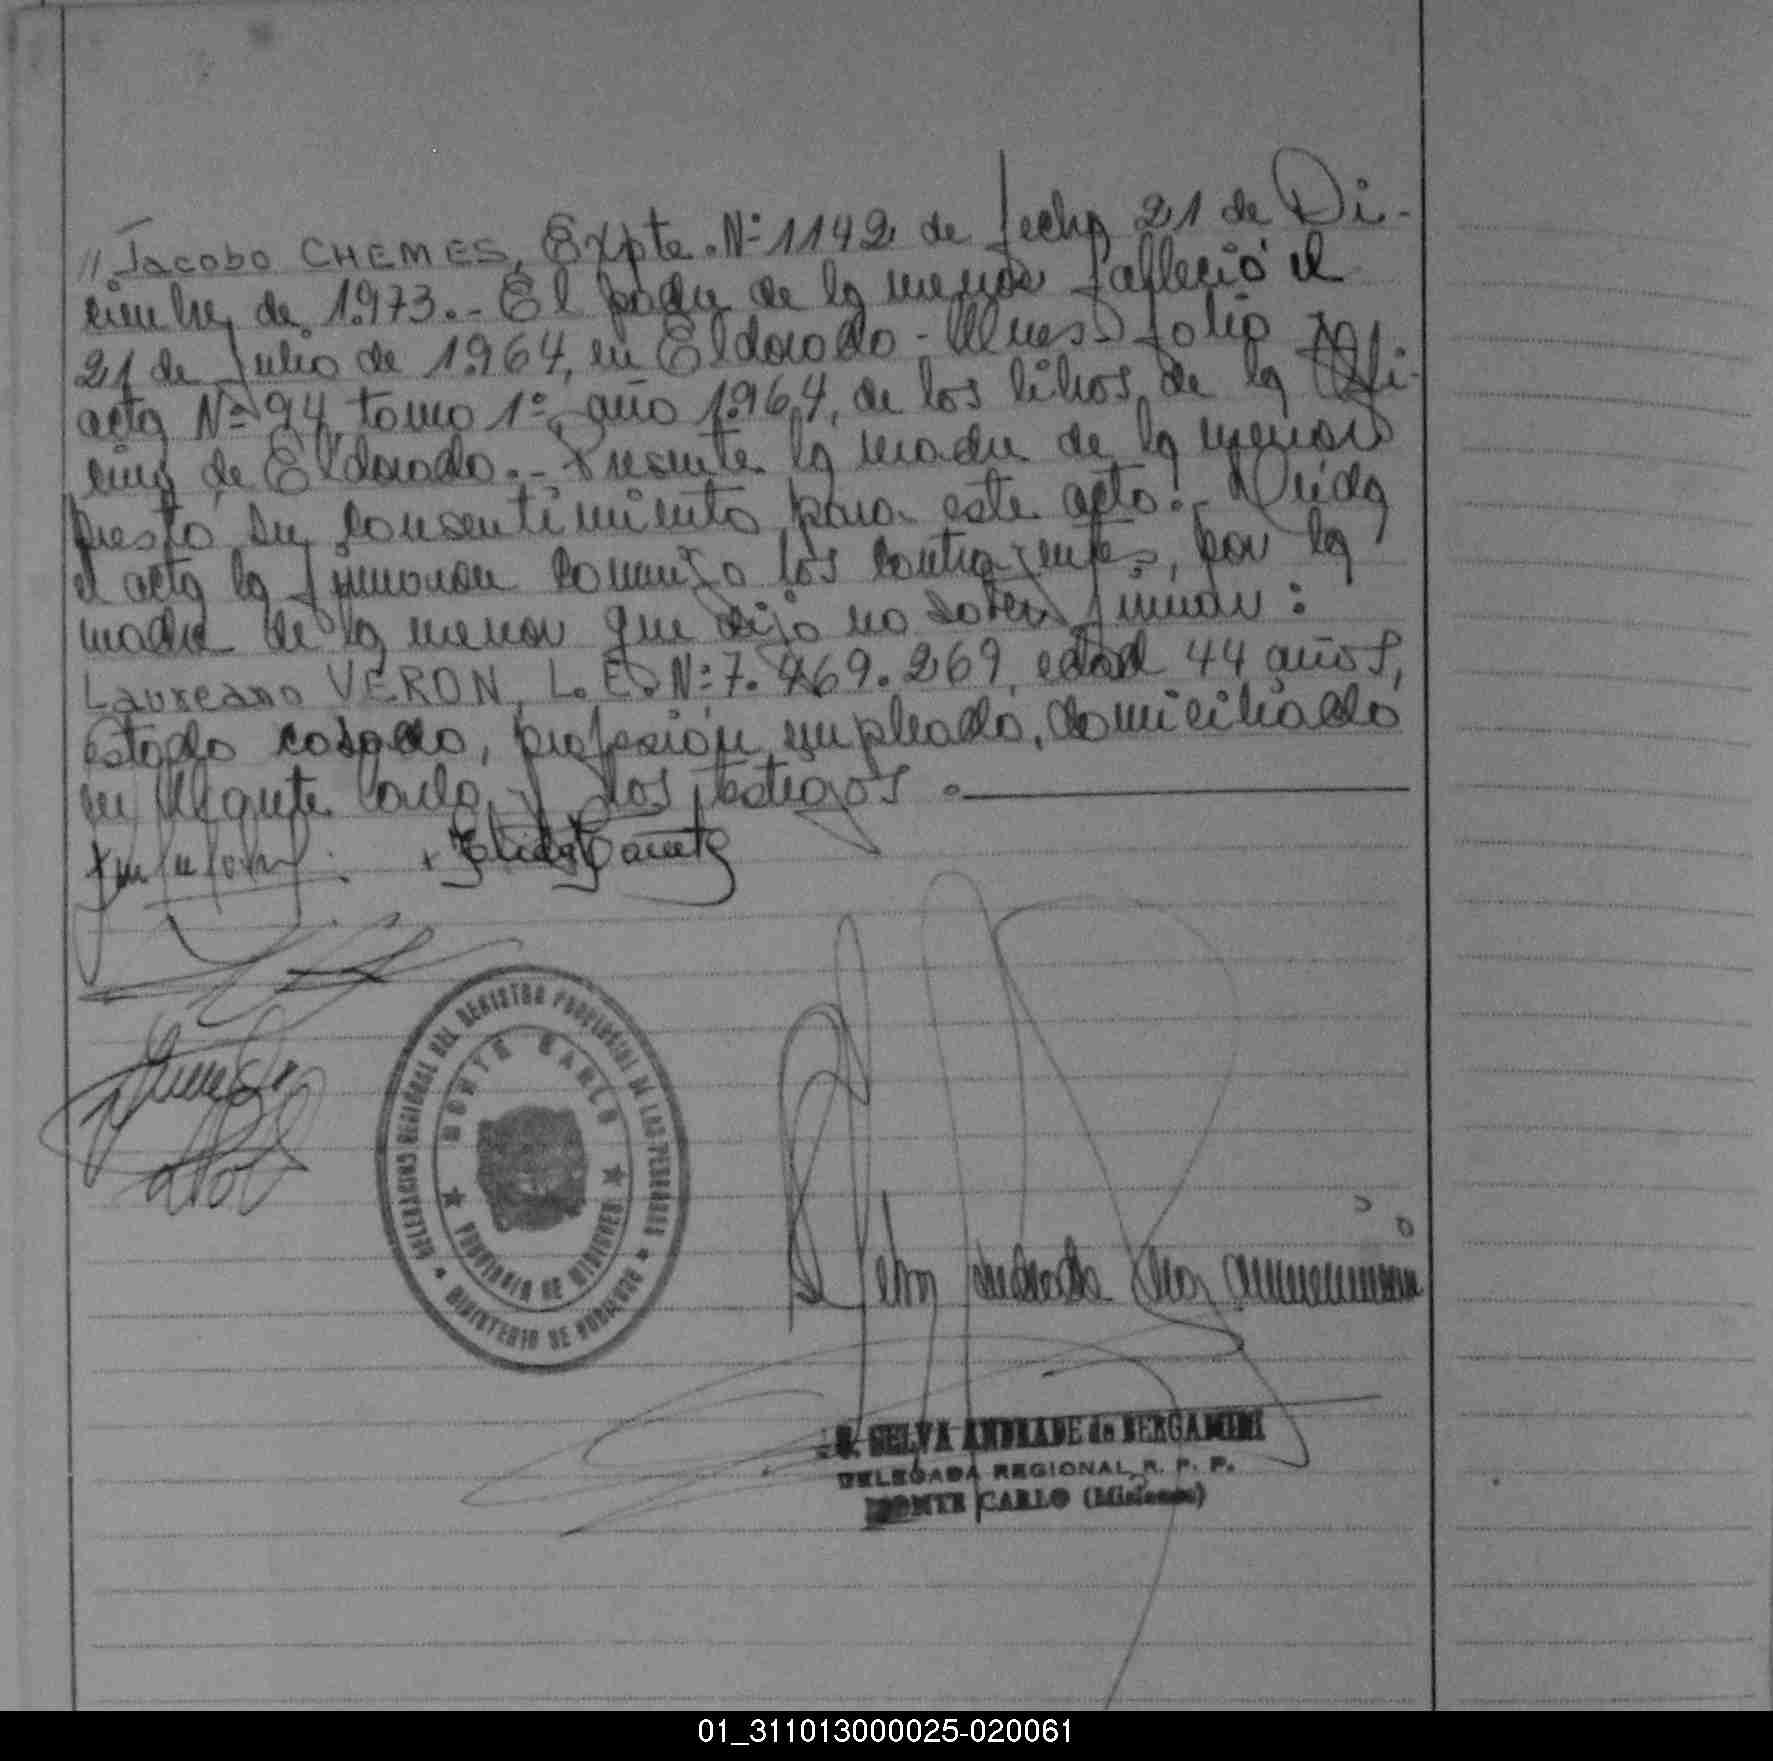 // Jacobo CHEMES, Expte. Nº 1142 de fecha 21 de Di-
ciembre de 1.973.- El padre de la menor falleció el
21 de Julio de 1.964, en Eldorado - Mnes. folio
acta Nº 94 tomo 1º, año 1.964, de los libros de la Ofi-
cina de Eldorado.- Presente la madre de la menor
prestó su consentimiento para este acto.- Leída
el acta la firmaron conmigo los contrayentes, por la
madre de la menor que dijo no saber firmar:
Laureano VERON, L.E. Nº 7.469.269, edad 44 años,
estado casado, profesión empleado, domiciliado
en Monte Carlo, y los testigos.-
DELEGACION REGIONAL DEL REGISTRO PROVINCIAL DE LAS PERSONAS
MINISTERIO DE GOBIERNO
MONTE CARLO
PROVINCIA DE MISIONES
S. SELVA ANDRADE de BERGAMINI
DELEGADA REGIONAL R. P. P.
MONTE CARLO (Misiones)
01_311013000025-020061